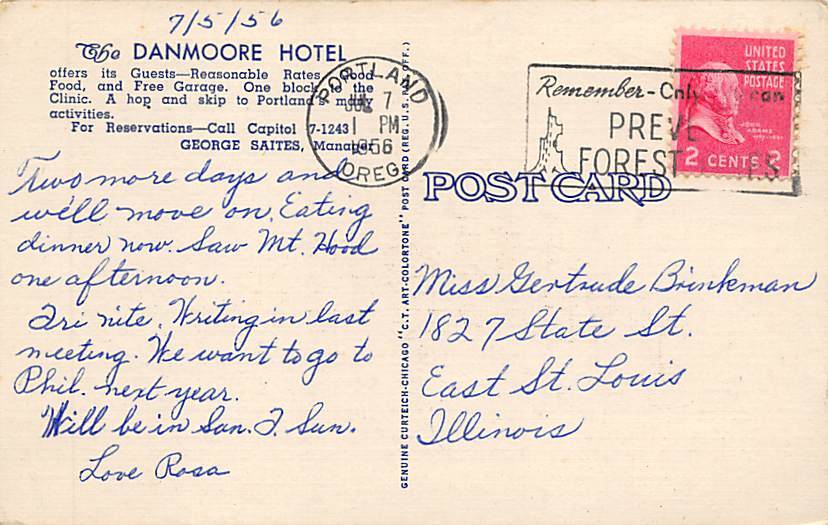 7/5/56
The DANMOORE HOTEL
offers its Guests—Reasonable Rates, Good
Food, and Free Garage. One block to the
Clinic. A hop and skip to Portland's many
activities.
For Reservations—Call Capitol 7-1243
GEORGE SAITES, Manager
Two more days and
we'll move on. Eating
dinner now. Saw Mt. Hood
one afternoon.
Fri nite. Writing in last
meeting. We want to go to
Phil. next year.
Will be in San. F. Sun.
Love Rosa
PORTLAND
JUL 7
1 PM
1956
OREG.
GENUINE CURTEICH-CHICAGO "C.T. ART-COLORTONE" POST CARD (REG. U.S. PAT. OFF.)
Remember - Only can
PREVE
FOREST
UNITED
STATES
POSTAGE
JOHN
ADAMS
2 CENTS 2
POST CARD
Miss Gertrude Brinkman
1827 State St.
East St. Louis
Illinois